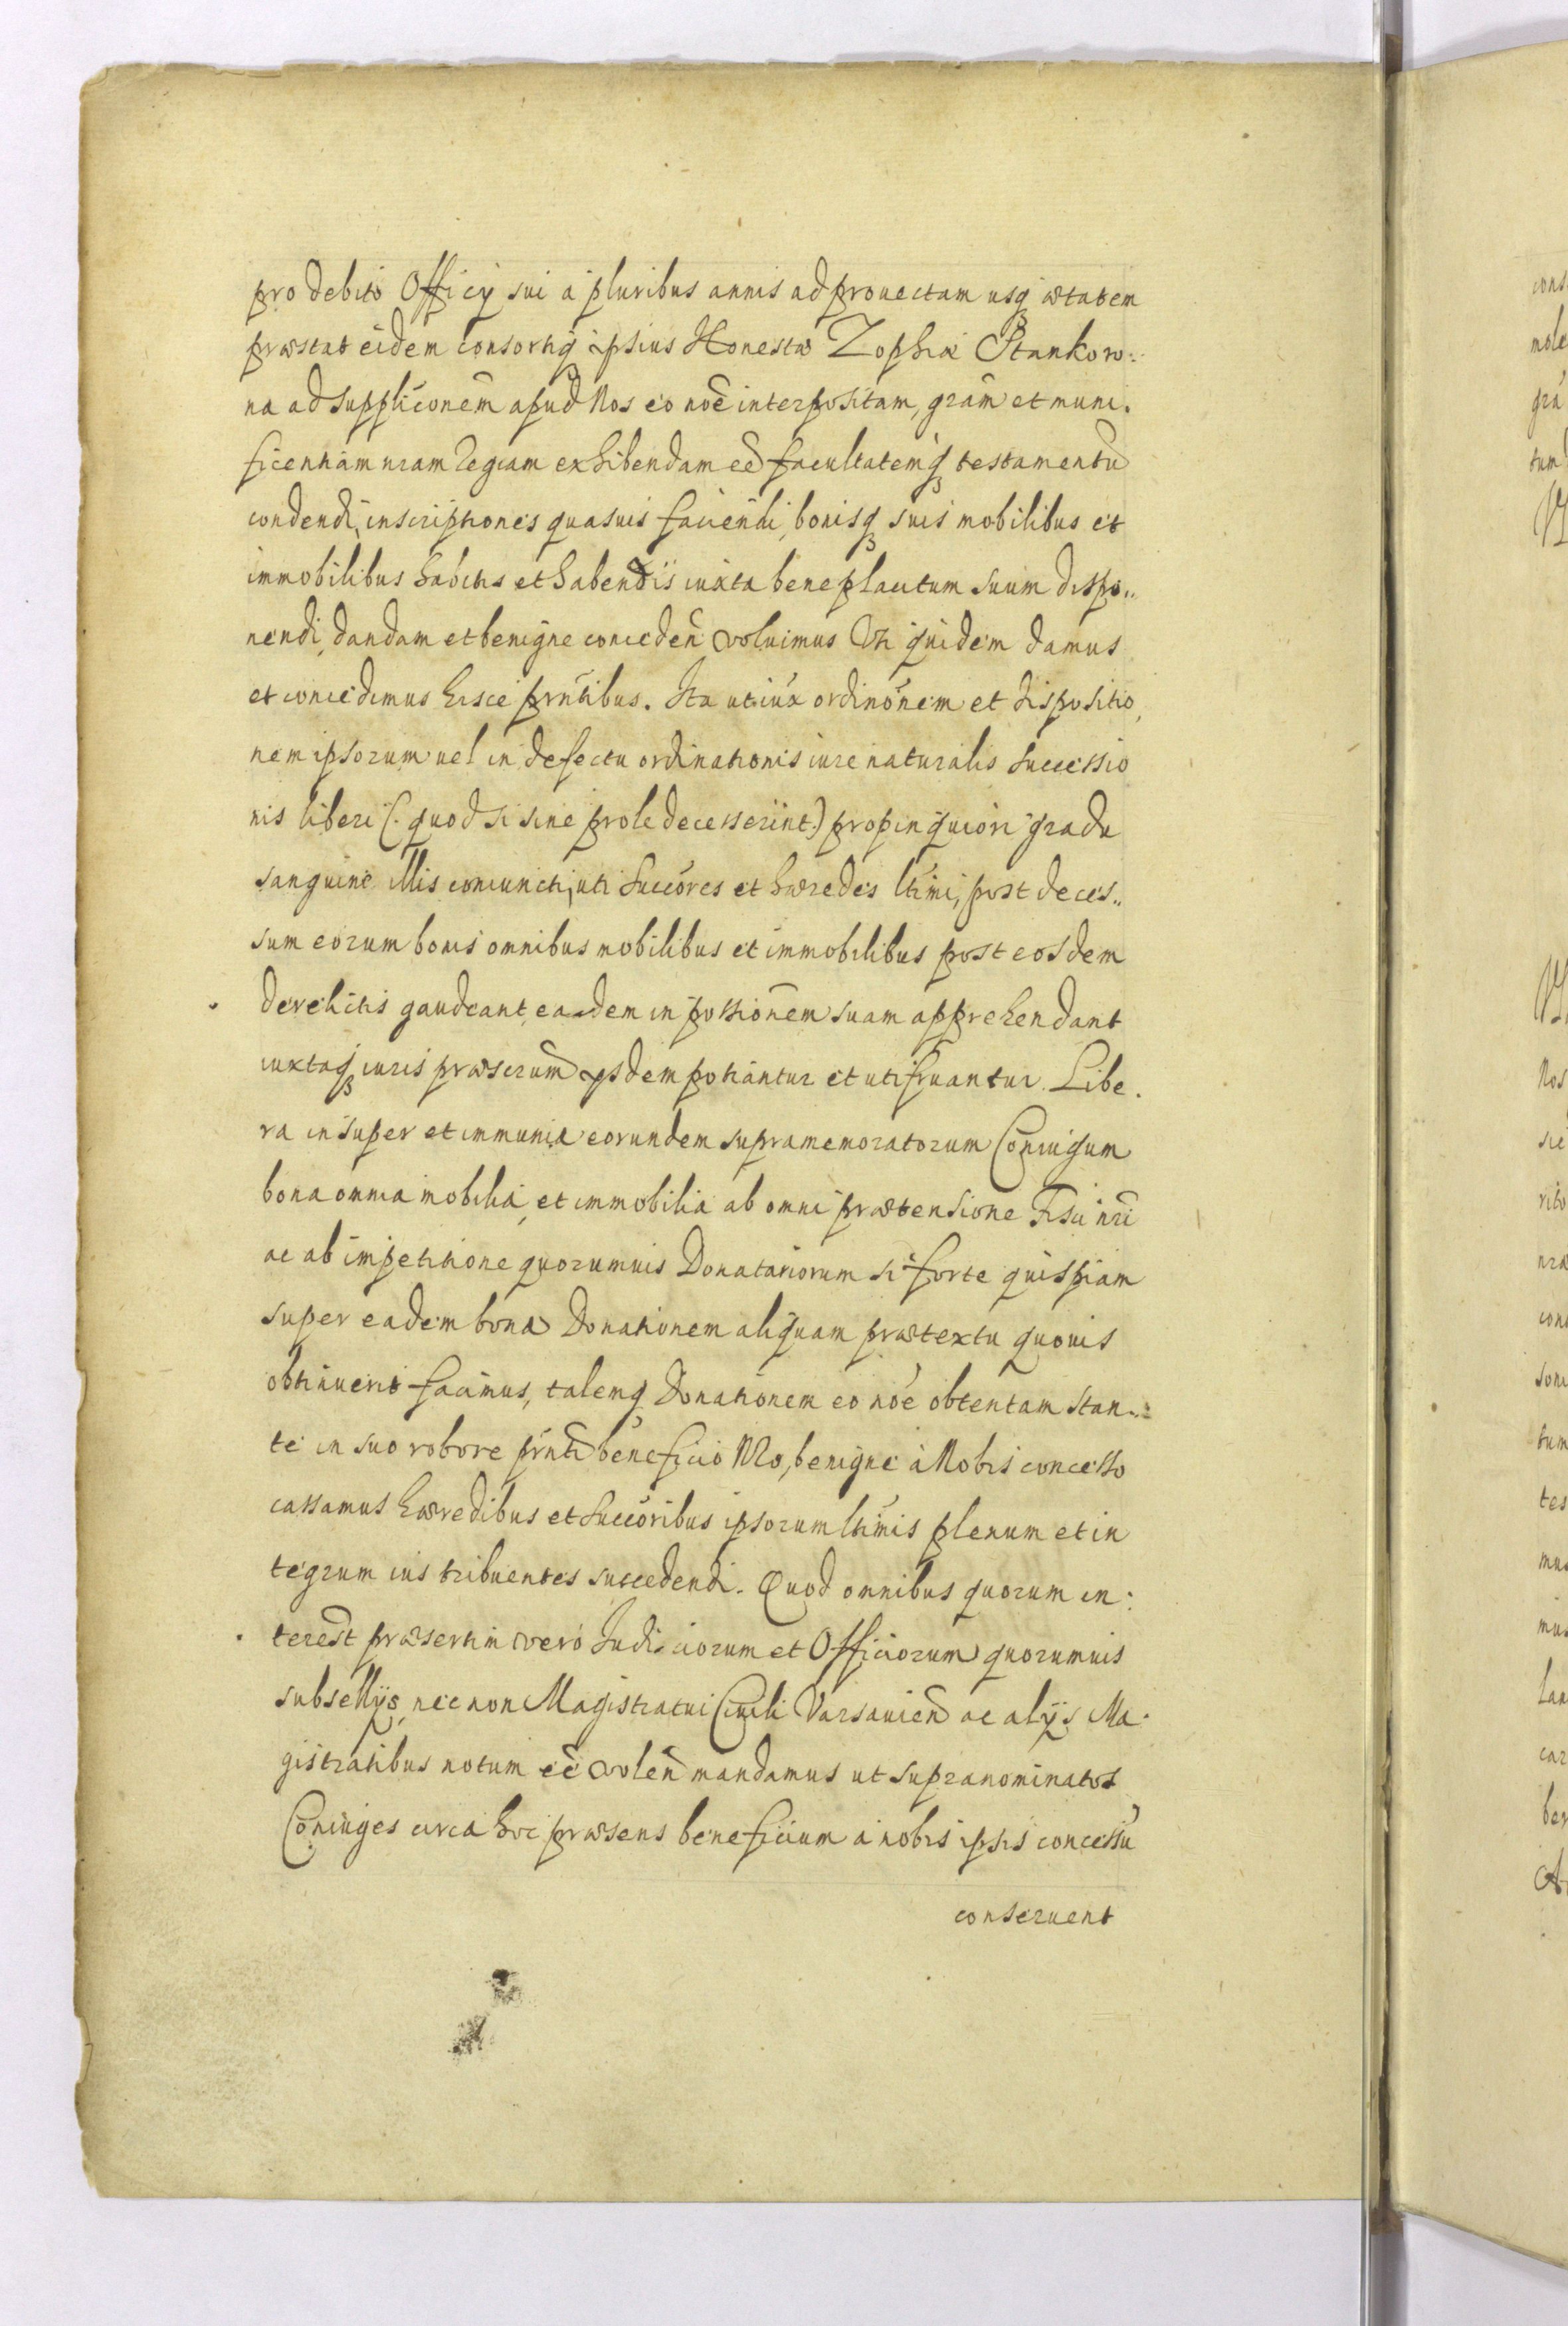 pro debito Officÿ sui à pluribus annis ad prouectam usq́ₛ ætatem
præstat eidem consortiq́ₛ ipsius Honestæ Zophiæ Stankow:
na ad supplicõnem apud Nos eo noẽ interpositam, grãm et muni.
ficentiam nram Regiam exhibendam eẽ facultatemq́ₛ testamentũ
condendi, inscriptiones quasuis faciendi, bonisq́ₛ suis mobilibus et
immobilibus habitis et habendis iuxta beneplacitum suum dispo..
nendi, dandam et benigne conceden̄ voluimus Uti quidem damus
et concedimus hisce prñtibus. Ita ut iux ordinõnem et dispositio,
nem ipsorum uel in defectu ordinationis iure naturalis successio
nis liberi (. quod si sine prole decesserint.) propinquiori gradu
sanguine illis coniuncti, uti succõres et hæredes ltimi, post deces..
sum eorum bonis omnibus mobilibus et immobilibus post eosdem
derelictis gaudeant, eadem in possionẽm suam apprehendant
iuxtaq́ₛ iuris præscrum ÿsdem potiantur et utifruantur. Libe.
ra insuper et immunia eorundem supramemoratorum Coniugum
bona omnia mobilia, et immobilia ab omni prætensione Fisci nri
ac ab impetitione quorumuis Donatariorum si forte quispiam
super eadem bona Donationem aliquam prætextu quouis
obtinuerit facimus, talemq́ Donationem eo noẽ obtentam stan..
te in suo robore prñti beneficio Nro, benigne à Nobis concesso
cassamus hæredibus et succõribus ipsorum ltimis plenum et in
tegrum ius tribuentes succedendi. Quod omnibus quorum in:
terest præsertim vero Judiciorum et Officiorum quorumuis
subsellÿs, nec non Magistratui Ciuili Varsauien̄ ac alÿs Ma.
gistratibus notum eẽ volen̄ mandamus ut supranominatos
Coniuges circa hoc præsens beneficium à nobis ipsis concessũ
conseruent